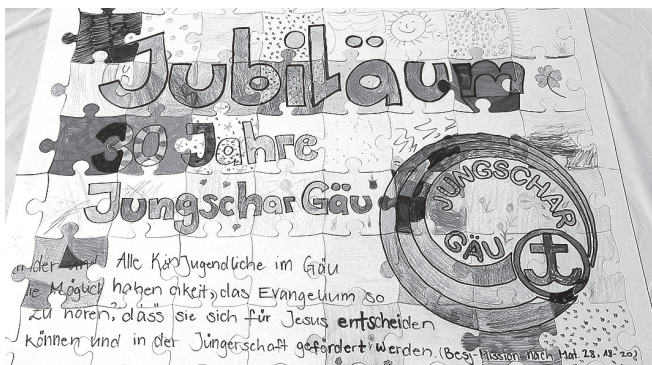 Jubiläum
30 Jahre
Jungschar Gäu
JUNGSCHAR
GÄU
nder und Alle Kin Jugendliche im Gäu
ie Möglich haben keit, das Evangelium so
zu hören, dass sie sich für Jesus entscheiden
können und in der Jüngerschaft gefördert werden. (Besj-Mission nach Mat. 28, 18-20)